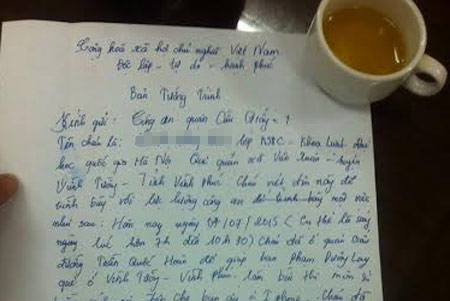 Cộng hoà xã hội chủ nghĩa Việt Nam
Độc lập - tự do - hạnh phúc
Bản Tường Trình
Kính gửi: Công an quận Cầu Giấy
Tên cháu là: lớp K57C - Khoa Luật - Đại
học quốc gia Hà Nội Quê quán xã Vân Xuân - huyện
Vĩnh Tường - Tỉnh Vĩnh Phúc. Cháu viết đơn này để
trình bày với lực lượng công an một việc
như sau: Hôm nay ngày 07/2015 (Cụ thể là sáng
ngay lúc hơn 7h đến 10h30) Cháu đã ở quán
đường Trần Quốc Hoàn để giúp bạn Phạm
quê ở Vĩnh Tường - Vĩnh Phúc làm bài thi môn
cho bạn ấy Cháu đã